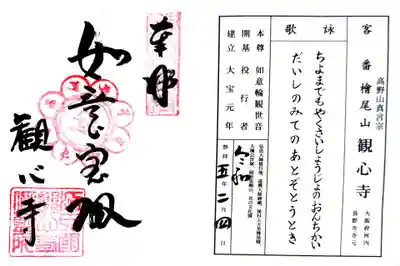 高野山真言宗
客番 檜尾山 観心寺
大阪府河内
長野市寺元
詠歌
ちよまでもやくさいしょうじょのおんちかい
だいしのみてのあとぞとうとき
本尊 如意輪観世音
開基 役行者
建立 大宝元年
令和五年二月四日
奉拝
如意宝珠
観心寺